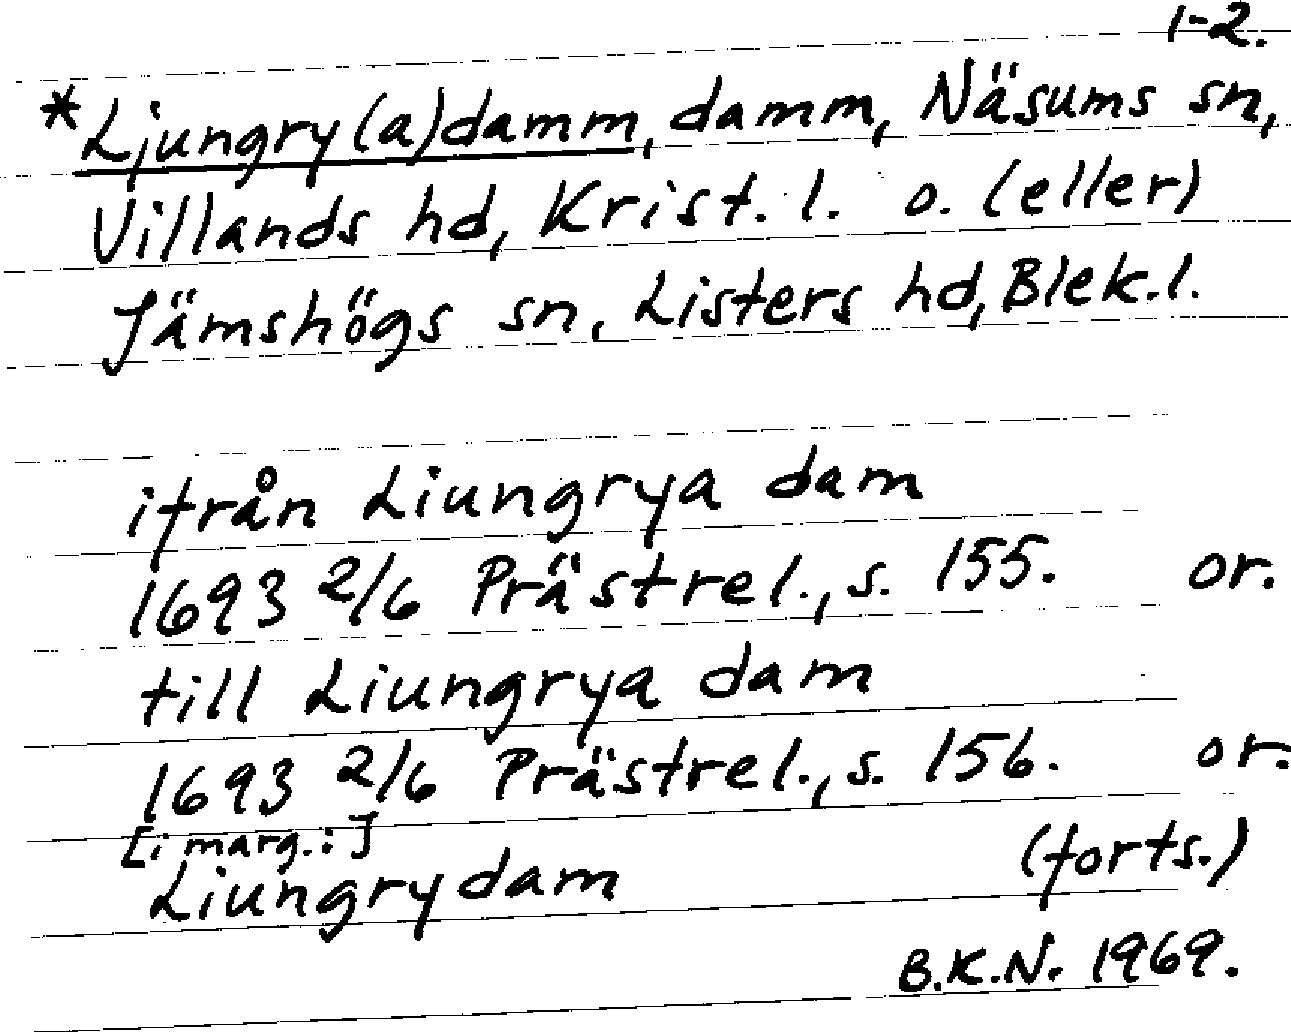 1-2.
*Ljungry(a)damm, damm, Näsums sn,
Villands hd, Krist. l. o. (eller)
Jämshögs sn, Listers hd, Blek. l.
ifrån Liungrya dam
1693 2/6 Prästrel., s. 155. or.
till Liungrya dam
1693 2/6 Prästrel., s. 156. or.
[i marg.:]
Liungrydam (forts.)
B.K.N. 1969.